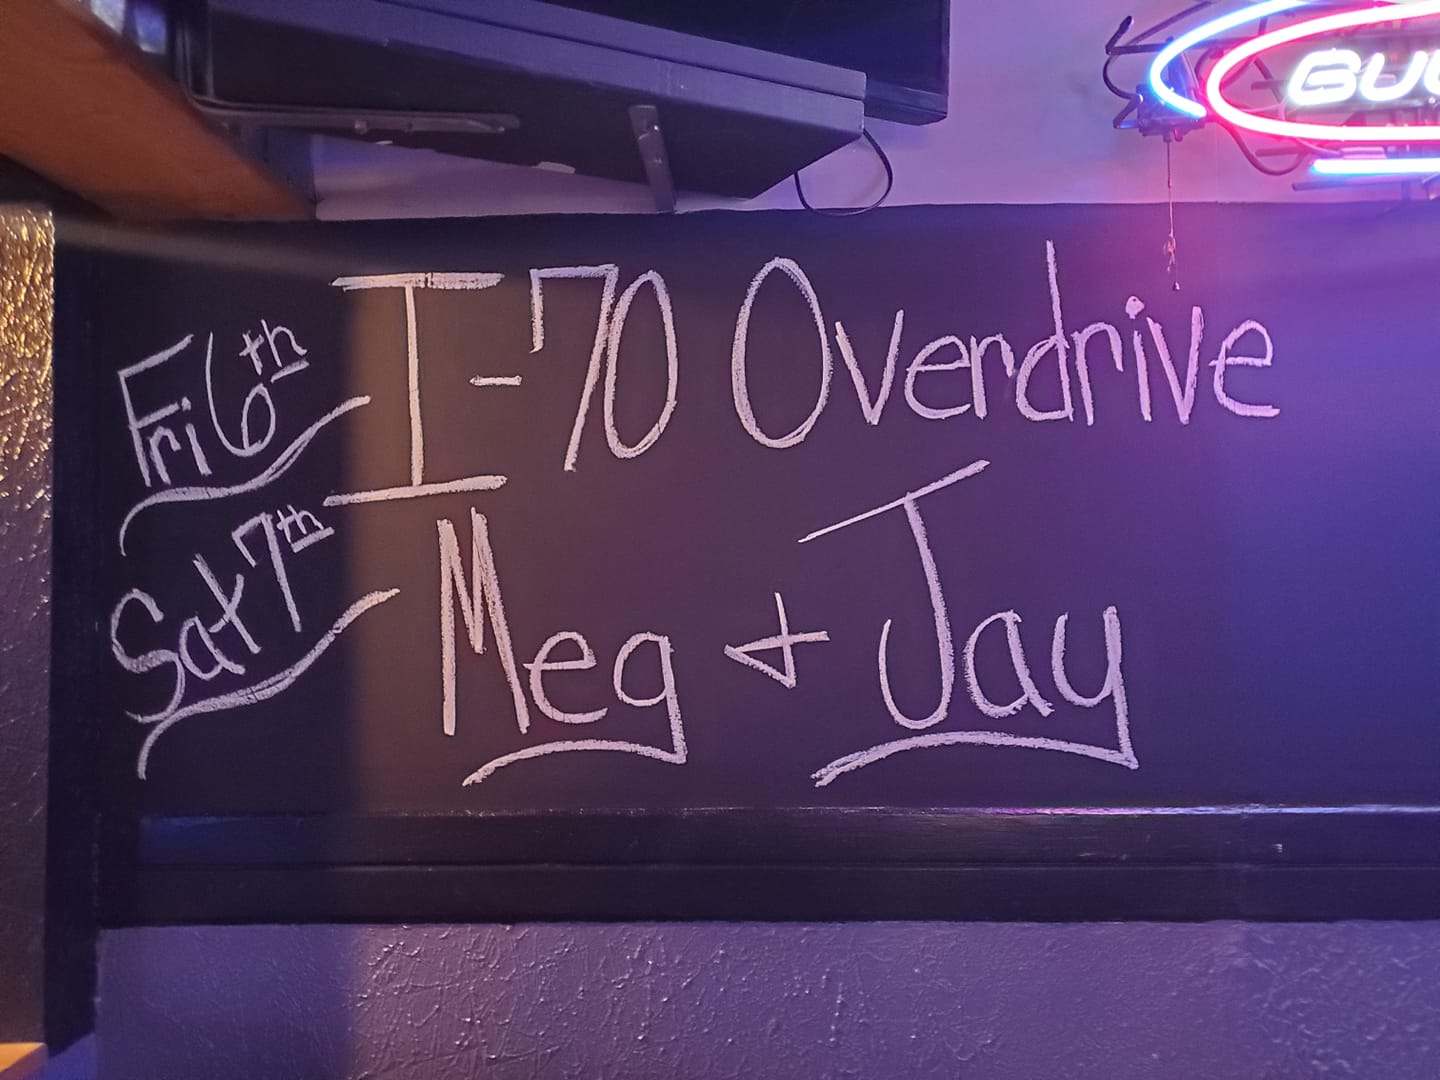 BUD
Fri 6th I-70 Overdrive
Sat 7th Meg + Jay